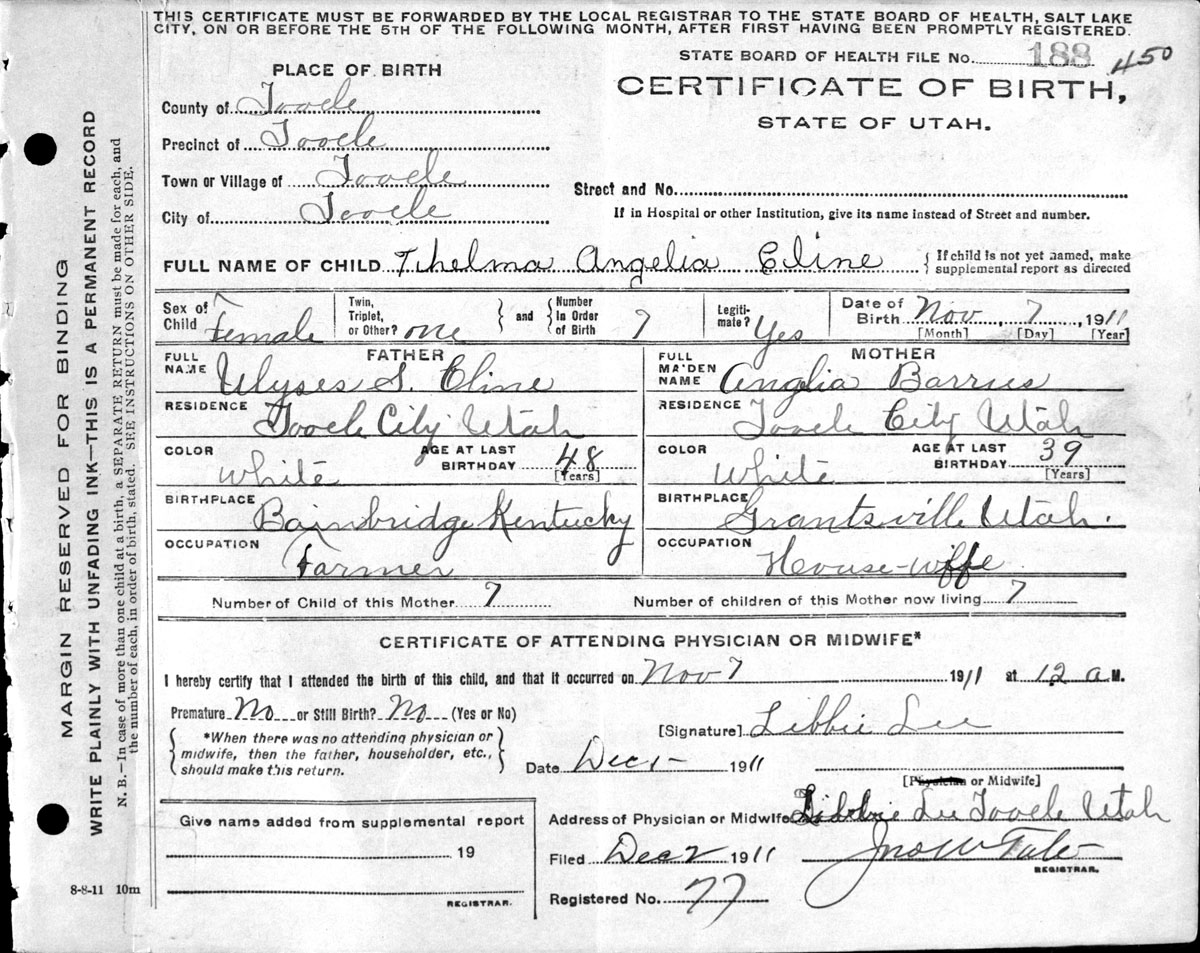 THIS CERTIFICATE MUST BE FORWARDED BY THE LOCAL REGISTRAR TO THE STATE BOARD OF HEALTH, SALT LAKE
CITY, ON OR BEFORE THE 5TH OF THE FOLLOWING MONTH, AFTER FIRST HAVING BEEN PROMPTLY REGISTERED.
STATE BOARD OF HEALTH FILE No. 188 450
PLACE OF BIRTH
CERTIFICATE OF BIRTH,
STATE OF UTAH.
County of Tooele
Precinct of Tooele
Town or Village of Tooele
Street and No.
City of Tooele
If in Hospital or other Institution, give its name instead of Street and number.
FULL NAME OF CHILD Thelma Angelia Cline { If child is not yet named, make
supplemental report as directed
Sex of Child Female
Twin, Triplet, or Other? one } and { Number In Order of Birth 7
Legiti-mate? Yes
Date of Birth Nov, 7, 1911
[Month] [Day] [Year]
FATHER
FULL NAME Ulyses S. Cline
RESIDENCE Tooele City Utah
COLOR White AGE AT LAST BIRTHDAY 48
[Years]
BIRTHPLACE Bainbridge Kentucky
OCCUPATION Farmer
MOTHER
FULL MAIDEN NAME Anglia Barrus
RESIDENCE Tooele City Utah
COLOR White AGE AT LAST BIRTHDAY 39
[Years]
BIRTHPLACE Grantsville Utah.
OCCUPATION House-wife
Number of Child of this Mother 7 Number of children of this Mother now living 7
CERTIFICATE OF ATTENDING PHYSICIAN OR MIDWIFE*
I hereby certify that I attended the birth of this child, and that it occurred on Nov 7 1911 at 12 a M.
Premature No or Still Birth? No (Yes or No)
*When there was no attending physician or
midwife, then the father, householder, etc.,
should make this return.
[Signature] Libbie Lee
Date Dec 1- 1911
[Physician or Midwife]
Give name added from supplemental report
19
REGISTRAR.
Address of Physician or Midwife Libbie Lee Tooele Utah
Filed Dec 2 1911 Jno W Tate
REGISTRAR.
Registered No. 77
8-8-11 10m
MARGIN RESERVED FOR BINDING
WRITE PLAINLY WITH UNFADING INK—THIS IS A PERMANENT RECORD
N. B.—In case of more than one child at a birth, a SEPARATE RETURN must be made for each, and
the number of each, in order of birth, stated. SEE INSTRUCTIONS ON OTHER SIDE.